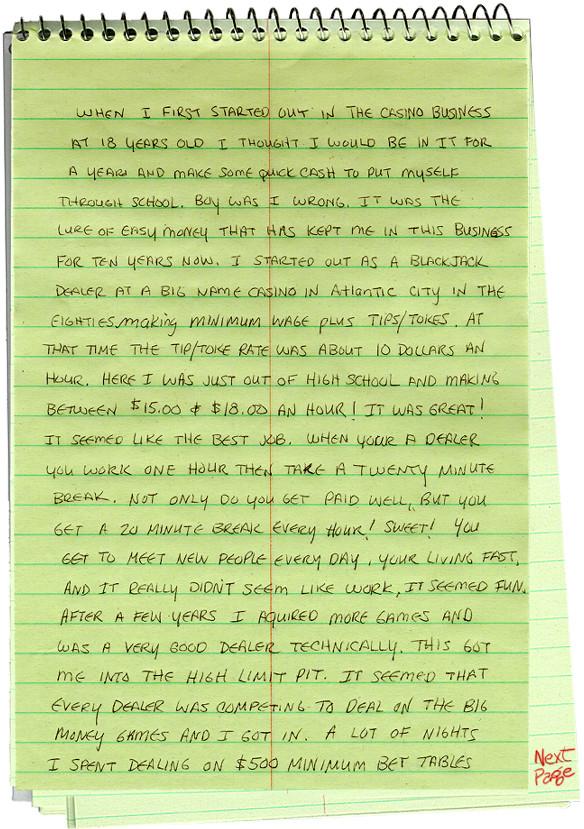 WHEN I FIRST STARTED OUT IN THE CASINO BUSINESS
AT 18 YEARS OLD I THOUGHT I WOULD BE IN IT FOR
A YEAR AND MAKE SOME QUICK CASH TO PUT MYSELF
THROUGH SCHOOL. BOY WAS I WRONG. IT WAS THE
LURE OF EASY MONEY THAT HAS KEPT ME IN THIS BUSINESS
FOR TEN YEARS NOW. I STARTED OUT AS A BLACKJACK
DEALER AT A BIG NAME CASINO IN Atlantic City IN THE
EIGHTIES, making MINIMUM WAGE plus TIPS/TOKES. AT
THAT TIME THE TIP/TOKE RATE WAS ABOUT 10 DOLLARS AN
HOUR. HERE I WAS JUST OUT OF HIGH SCHOOL AND MAKING
BETWEEN $15.00 & $18.00 AN HOUR! IT WAS GREAT!
IT SEEMED LIKE THE BEST JOB. WHEN YOUR A DEALER
YOU WORK ONE HOUR THEN TAKE A TWENTY MINUTE
BREAK. NOT ONLY DO YOU GET PAID WELL, BUT YOU
GET A 20 MINUTE BREAK EVERY HOUR! SWEET! YOU
GET TO MEET NEW PEOPLE EVERY DAY, YOUR LIVING FAST,
AND IT REALLY DIDN'T SEEM LIKE WORK, IT SEEMED FUN.
AFTER A FEW YEARS I AQUIRED MORE GAMES AND
WAS A VERY GOOD DEALER TECHNICALLY. THIS GOT
ME INTO THE HIGH LIMIT PIT. IT SEEMED THAT
EVERY DEALER WAS COMPETING TO DEAL ON THE BIG
MONEY GAMES AND I GOT IN. A LOT OF NIGHTS
I SPENT DEALING ON $500 MINIMUM BET TABLES
Next
Page